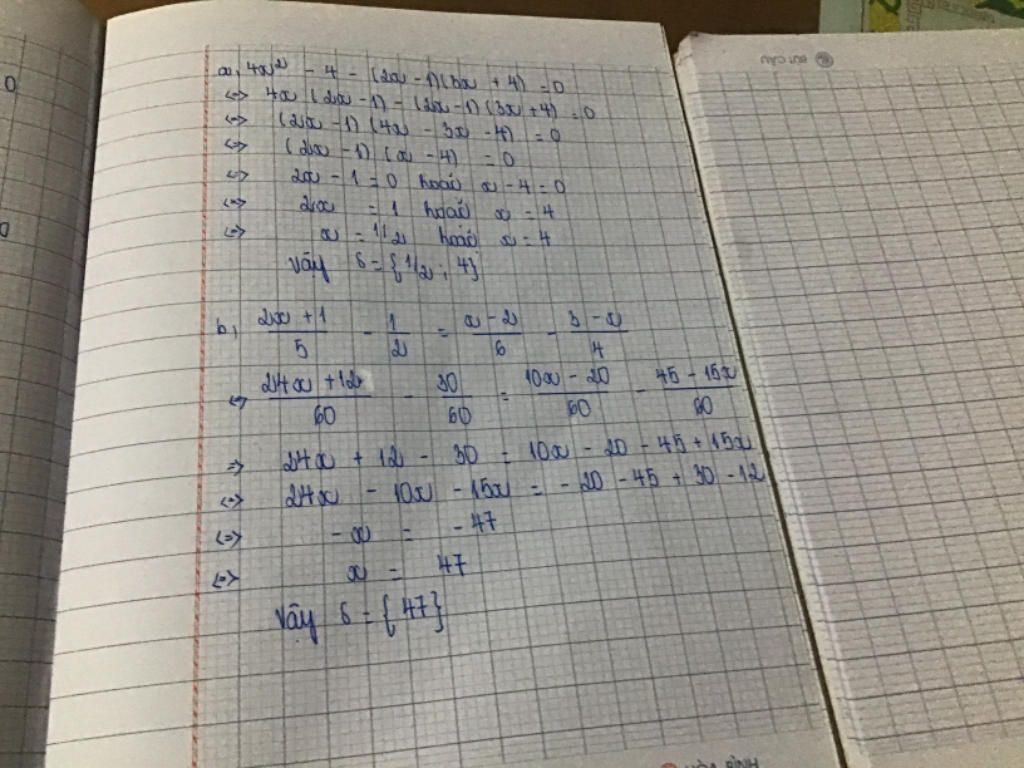 a, 4x² - 4 - (2x - 1)(3x + 4) = 0
<=> 4x (2x - 1) - (2x - 1) (3x + 4) = 0
<=> (2x - 1) (4x - 3x - 4) = 0
<=> (2x - 1) (x - 4) = 0
<=> 2x - 1 = 0 hoặc x - 4 = 0
<=> 2x = 1 hoặc x = 4
<=> x = 1/2 hoặc x = 4
Vậy S = {1/2 ; 4}
b, (2x + 1)/5 - 1/2 = (x - 2)/6 - (3 - x)/4
<=> (24x + 12)/60 - 30/60 = (10x - 20)/60 - (45 - 15x)/60
=> 24x + 12 - 30 = 10x - 20 - 45 + 15x
<=> 24x - 10x - 15x = - 20 - 45 + 30 - 12
<=> - x = - 47
<=> x = 47
Vậy S = {47}
0
0